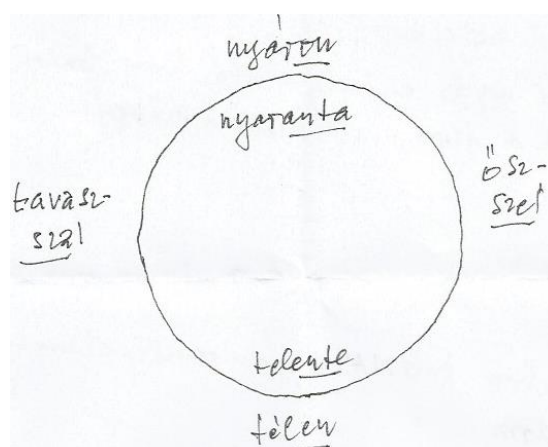 nyáron
nyaranta
tavasz-
szal
ősz-
szel
telente
télen